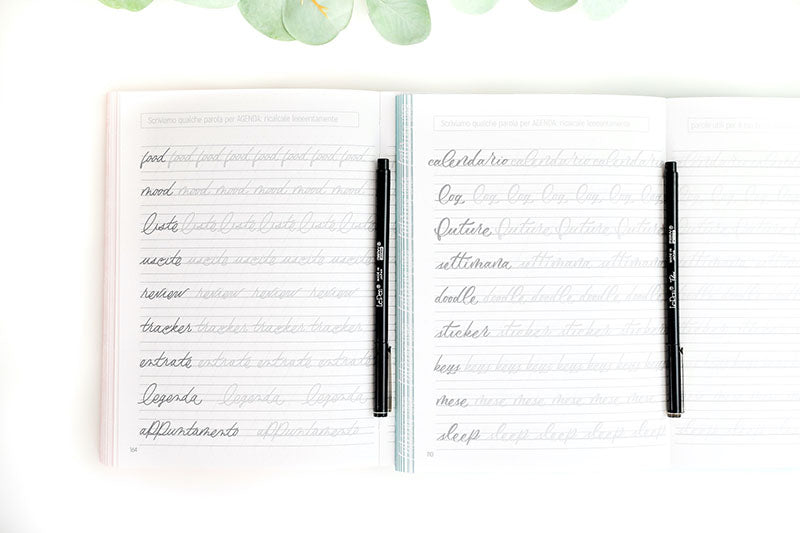 Scriviamo qualche parola per AGENDA: ricalcale leeeentamente
food food food food food food food food
mood mood mood mood mood mood
liste liste liste liste liste liste
uscite uscite uscite uscite uscite
review review review review
tracker tracker tracker tracker
entrate entrate entrate entrate
legenda legenda legenda
appuntamento appuntamento
164
Scriviamo qualche parola per AGENDA: ricalcale leeeentamente
calendario calendario calendario
log log log log log log log
future future future future future
settimana settimana settimana
doodle doodle doodle doodle doodle
sticker sticker sticker sticker
keys keys keys keys keys keys keys
mese mese mese mese mese mese
sleep sleep sleep sleep sleep
110
parole utili per il